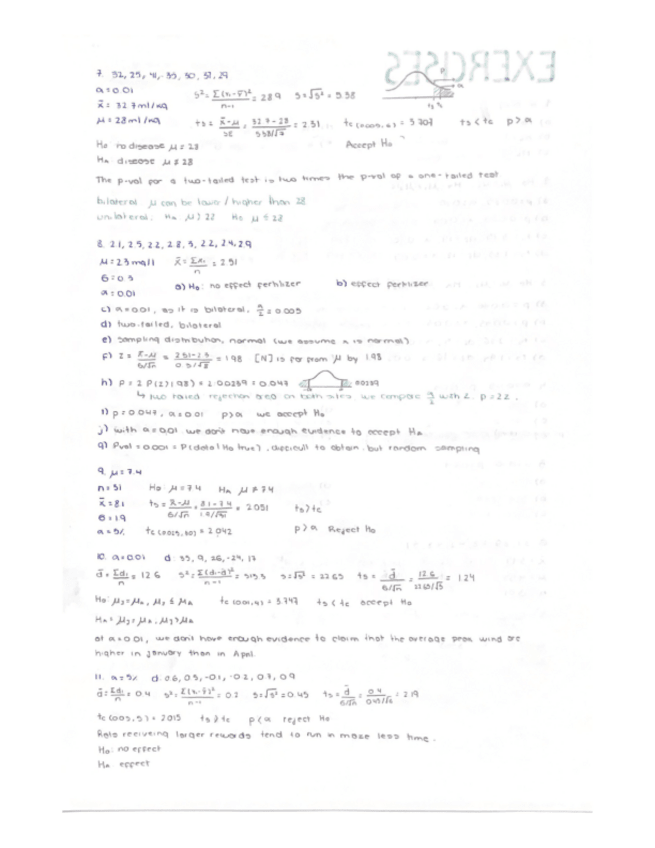 EXERCISES
7. 32, 25, 41, 35, 30, 37, 29
α = 0.01
s² = Σ(xᵢ-x̄)²/n-1 = 28.9 s = √s² = 5.38
x̄ = 32.7 ml/kg
μ = 28 ml/kg ts = x̄-μ/SE = 32.7-28/5.38/√7 = 2.31 tc (0.005, 6) = 3.707 ts < tc p > α
H₀ no disease μ = 28 Accept H₀
Hₐ disease μ ≠ 28
The p-val for a two-tailed test is two times the p-val of a one-tailed test
bilateral: μ can be lower / higher than 28
unilateral: Hₐ μ > 22 H₀ μ ≤ 28
8. 21, 25, 22, 28, 22, 24, 29
μ = 23 mg/l x̄ = Σxᵢ/n = 2.51
α = 0.01 a) H₀: no effect fertilizer b) effect fertilizer
c) α = 0.01, as it is bilateral, α/2 = 0.005
d) two-tailed, bilateral
e) sampling distribution, normal (we assume x is normal)
f) Z = x̄-μ/σ/√n = 1.98 [N] is far from μ by 1.98
h) p = 2 P(Z > 1.98) = 2 · 0.0239 = 0.047 0.0239
↳ two tailed rejection area on both sides we compare α/2 with Z
i) p = 0.047, α = 0.01 p > α we accept H₀
j) with α = 0.01 we don't have enough evidence to accept Hₐ
g) Pval = 0.001 = P(data | H₀ true), difficult to obtain, but random sampling
9. μ = 7.4
n = 31 H₀: μ = 7.4 Hₐ μ ≠ 7.4
x̄ = 8.1 ts = x̄-μ/σ/√n = 8.1-7.4/1.9/√31 = 2.051 ts > tc
σ = 1.9
α = 5% tc (0.025, 30) = 2.042 p > α Reject H₀
10. α = 0.01 d: 35, 9, 26, -24, 17
d̄ = Σdᵢ/n = 12.6 s² = Σ(dᵢ-d̄)²/n-1 = 515.3 s = √s² = 22.65 ts = d̄/σ/√n = 12.6/22.65/√5 = 1.24
H₀: μJ = μA, μJ ≤ μA tc (0.01, 4) = 3.747 ts < tc accept H₀
Hₐ = μJ > μA
at α = 0.01, we don't have enough evidence to claim that the average wind are
higher in January than in April.
11. α = 5% d: 0.6, 0.5, -0.1, -0.2, 0.7, 0.9
d̄ = Σdᵢ/n = 0.4 s² = Σ(xᵢ-x̄)²/n-1 = 0.2 s = √s² = 0.45 ts = d̄/σ/√n = 0.4/0.45/√6 = 2.19
tc (0.05, 5) = 2.015 ts > tc p < α reject H₀
Rats receiving larger rewards tend to run in maze less time.
H₀: no effect
Hₐ: effect